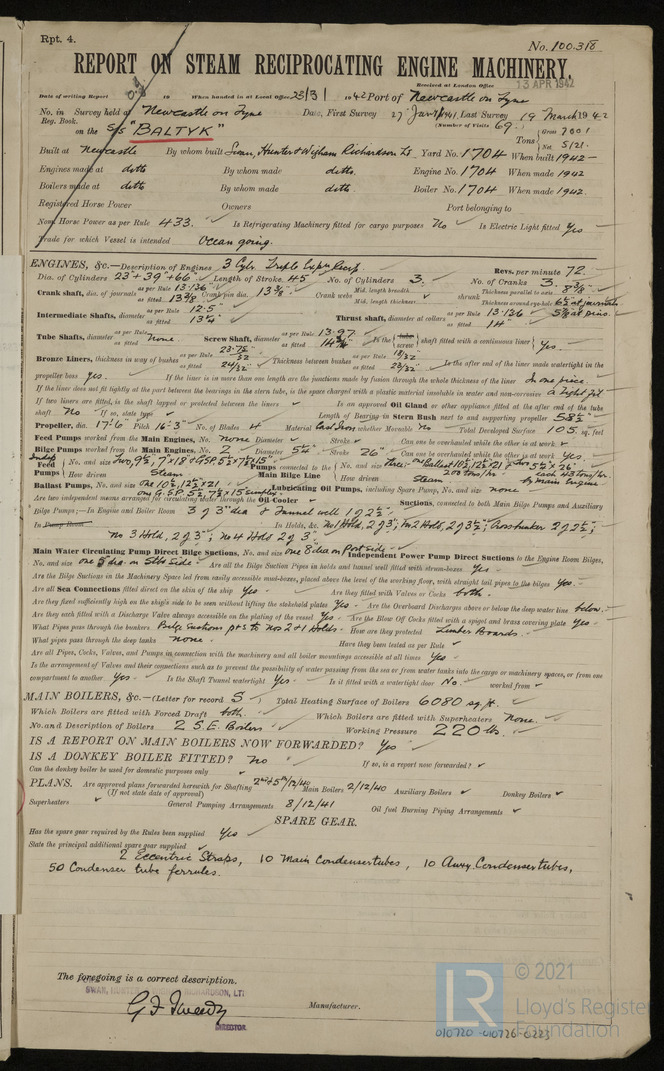 Rpt. 4.
No. 100.318
REPORT ON STEAM RECIPROCATING ENGINE MACHINERY.
Received at London Office 13 APR 1942
Date of writing Report 19 When handed in at Local Office 23/3/ 1942 Port of Newcastle on Tyne
No. in Survey held at Newcastle on Tyne Date, First Survey 27 Last Survey 19 March 1942
Reg. Book. (Number of Visits 69)
on the S/S "BALTYK" Tons Gross 7001 Net 5121
Built at Newcastle By whom built Swan, Hunter & Wigham Richardson Lt. Yard No. 1704 When built 1942
Engines made at ditto By whom made ditto Engine No. 1704 When made 1942
Boilers made at ditto By whom made ditto Boiler No. 1704 When made 1942
Registered Horse Power Owners Port belonging to
Nom. Horse Power as per Rule 433. Is Refrigerating Machinery fitted for cargo purposes No Is Electric Light fitted Yes
Trade for which Vessel is intended Ocean going.
ENGINES, &c.—Description of Engines 3 Cylr Triple Expn Recip Revs. per minute 72.
Dia. of Cylinders 23 + 39 + 66 Length of Stroke 45 No. of Cylinders 3. No. of Cranks 3.
Crank shaft, dia. of journals as per Rule 13.126 as fitted 13 7/8 Crank pin dia. 13 3/4 Crank webs Mid. length breadth Mid. length thickness shrunk Thickness parallel to axis 8 3/8 Thickness around eye-hole
Intermediate Shafts, diameter as per Rule 12.5 as fitted 13 1/4 Thrust shaft, diameter at collars as per Rule 13.126 as fitted 14"
Tube Shafts, diameter as per Rule None. as fitted Screw Shaft, diameter as per Rule 13.97 as fitted 14 3/4 Is the tube screw shaft fitted with a continuous liner Yes.
Bronze Liners, thickness in way of bushes as per Rule as fitted 24/32 Thickness between bushes as per Rule as fitted 23/32 Is the after end of the liner made watertight in the
propeller boss Yes. If the liner is in more than one length are the junctions made by fusion through the whole thickness of the liner In one piece.
If the liner does not fit tightly at the part between the bearings in the stern tube, is the space charged with a plastic material insoluble in water and non-corrosive A tight fit
If two liners are fitted, is the shaft lapped or protected between the liners Is an approved Oil Gland or other appliance fitted at the after end of the tube
shaft No If so, state type Length of Bearing in Stern Bush next to and supporting propeller 58 1/2
Propeller, dia. 17'-6" Pitch 16'-3" No. of Blades 4 Material Cast Iron whether Moveable No Total Developed Surface 105 sq. feet
Feed Pumps worked from the Main Engines, No. none Diameter Stroke Can one be overhauled while the other is at work
Bilge Pumps worked from the Main Engines, No. 2 Diameter 5 1/4 Stroke 26" Can one be overhauled while the other is at work Yes.
Feed Pumps No. and size Two, 9 1/2, 7 x 18 + G.S.P. 5 1/2 x 7 1/2 x 15" How driven Steam Pumps connected to the Main Bilge Line No. and size Three: How driven Steam by main Engine
Ballast Pumps, No. and size one 10 1/2, 12 1/2 x 21 Lubricating Oil Pumps, including Spare Pump, No. and size none
Are two independent means arranged for circulating water through the Oil Cooler Suctions, connected to both Main Bilge Pumps and Auxiliary
Bilge Pumps;—In Engine and Boiler Room 3 of 3" dia & Tunnel well 1 of 2 1/2"
In Pump Room In Holds, &c. No 1 Hold, 2 of 3"; No 2 Hold, 2 of 3 1/2; Crossbunker 2 of 2 1/2;
No 3 Hold, 2 of 3"; No 4 Hold 2 of 3".
Main Water Circulating Pump Direct Bilge Suctions, No. and size one 8 dia on Port side Independent Power Pump Direct Suctions to the Engine Room Bilges,
No. and size one 5" dia. on Stbd side Are all the Bilge Suction Pipes in holds and tunnel well fitted with strum-boxes Yes
Are the Bilge Suctions in the Machinery Space led from easily accessible mud-boxes, placed above the level of the working floor, with straight tail pipes to the bilges Yes.
Are all Sea Connections fitted direct on the skin of the ship Yes Are they fitted with Valves or Cocks both.
Are they fixed sufficiently high on the ship's side to be seen without lifting the stokehold plates Yes Are the Overboard Discharges above or below the deep water line below.
Are they each fitted with a Discharge Valve always accessible on the plating of the vessel Yes Are the Blow Off Cocks fitted with a spigot and brass covering plate Yes
What Pipes pass through the bunkers Bilge Suctions pt & s to Nos 2 + 1 Holds. How are they protected Limber Boards.
What pipes pass through the deep tanks none. Have they been tested as per Rule
Are all Pipes, Cocks, Valves, and Pumps in connection with the machinery and all boiler mountings accessible at all times Yes
Is the arrangement of Valves and their connections such as to prevent the possibility of water passing from the sea or from water tanks into the cargo or machinery spaces, or from one
compartment to another Yes. Is the Shaft Tunnel watertight Yes. Is it fitted with a watertight door No. worked from
MAIN BOILERS, &c.—(Letter for record S) Total Heating Surface of Boilers 6080 sq. ft.
Which Boilers are fitted with Forced Draft both. Which Boilers are fitted with Superheaters none.
No. and Description of Boilers 2 S.E. Boilers Working Pressure 220 lb.
IS A REPORT ON MAIN BOILERS NOW FORWARDED? Yes
IS A DONKEY BOILER FITTED? No If so, is a report now forwarded?
Can the donkey boiler be used for domestic purposes only
PLANS. Are approved plans forwarded herewith for Shafting 2nd + 5th/12/40 Main Boilers 2/12/40 Auxiliary Boilers Donkey Boilers
(If not state date of approval)
Superheaters General Pumping Arrangements 8/12/41 Oil fuel Burning Piping Arrangements
SPARE GEAR.
Has the spare gear required by the Rules been supplied Yes
State the principal additional spare gear supplied
2 Eccentric Straps, 10 Main Condenser tubes, 10 Auxy. Condenser tubes,
50 Condenser tube ferrules.
The foregoing is a correct description.
SWAN, HUNTER & WIGHAM RICHARDSON, LTD.
G F Tweedy Manufacturer.
DIRECTOR
LR © 2021
Lloyd's Register
Foundation
010720-010726-0223